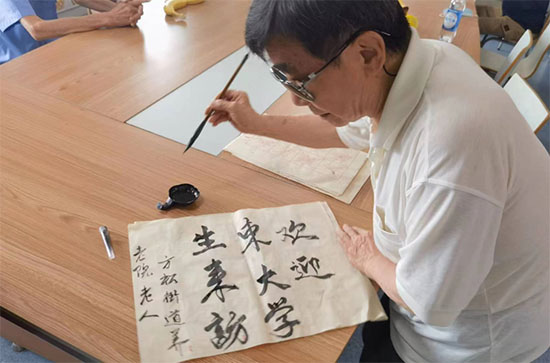 欢迎
東大学
生来訪
方松街道养
老院老人